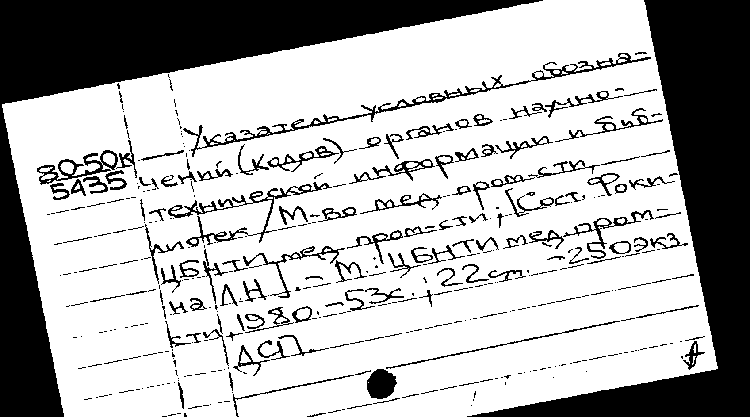 Указатель условных обозна=
80-50к
5435
чений (кодов) органов научно-
технической информации и биб=
лиотек / М-во мед. пром-сти,
ЦБНТИ мед. пром-сти; [Сост. Фоки-
на Л.Н.]. - М.: ЦБНТИ мед. пром=
сти, 1980. - 53с.; 22см. - 250экз.
ДСП.